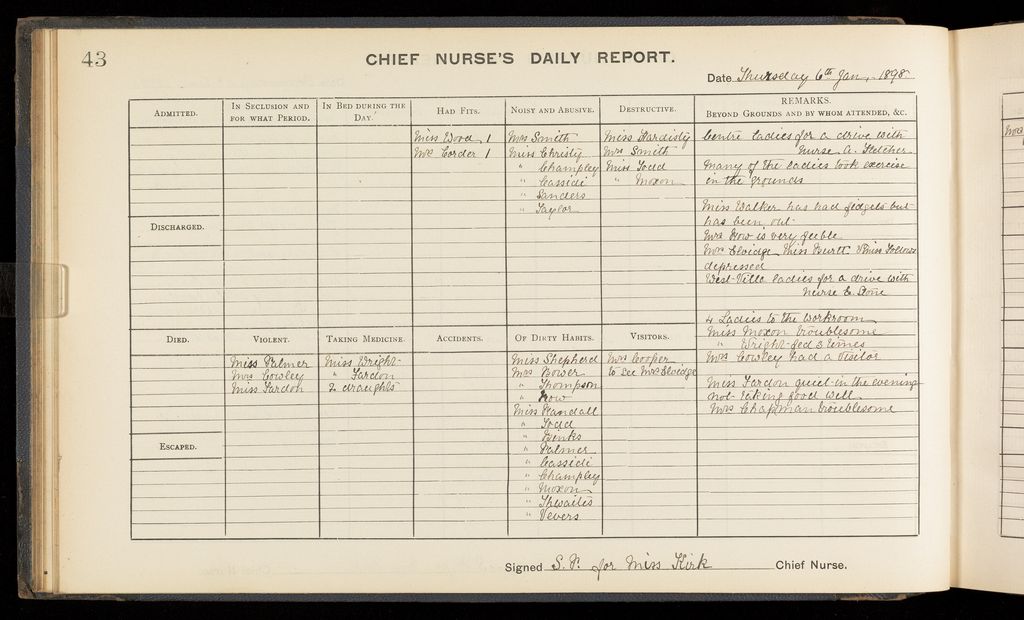 43
CHIEF NURSE'S DAILY REPORT.
Date Thursday 6th Jan, 1898
ADMITTED.
IN SECLUSION AND
FOR WHAT PERIOD.
IN BED DURING THE
DAY.
HAD FITS.
Miss Wood 1
Mrs Corder 1
NOISY AND ABUSIVE.
Mrs Smith
Miss Christy
" Champley
" Cassidi
" Sanders
" Taylor
DESTRUCTIVE.
Miss Hardisty
Mrs Smith
Miss Todd
" Moxon
REMARKS.
BEYOND GROUNDS AND BY WHOM ATTENDED, &C.
Centre ladies for a drive with
Nurse A. Fletcher
Many of the ladies took exercise
in the grounds
Miss Walker has had fidgets but
has been out.
Mrs How is very feeble
Mrs Elvidge Miss Burtt & Miss Follows
depressed
West-Villa ladies for a drive with
Nurse E. Stone
4 Ladies to the workroom
Miss Moxon troublesome
" Wright-fed 3 times
Mrs Cowley had a visitor
Miss Fardon quiet in the evening
not taking food well
Mrs Chapman troublesome
DISCHARGED.
DIED.
VIOLENT.
Miss Palmer
Mrs Cowley
Miss Fardon
TAKING MEDICINE.
Miss Wright-
" Fardon
2 draughts
ACCIDENTS.
OF DIRTY HABITS.
Miss Shepherd
Mrs Bower
" Thompson
" How
Miss Randall
" Todd
" Binks
" Palmer
" Cassidi
" Champley
" Moxon
" Thwaites
" Vevers
VISITORS.
Mrs Cooper
to see Mrs Elvidge
ESCAPED.
Signed S. P. for Miss Kirk Chief Nurse.